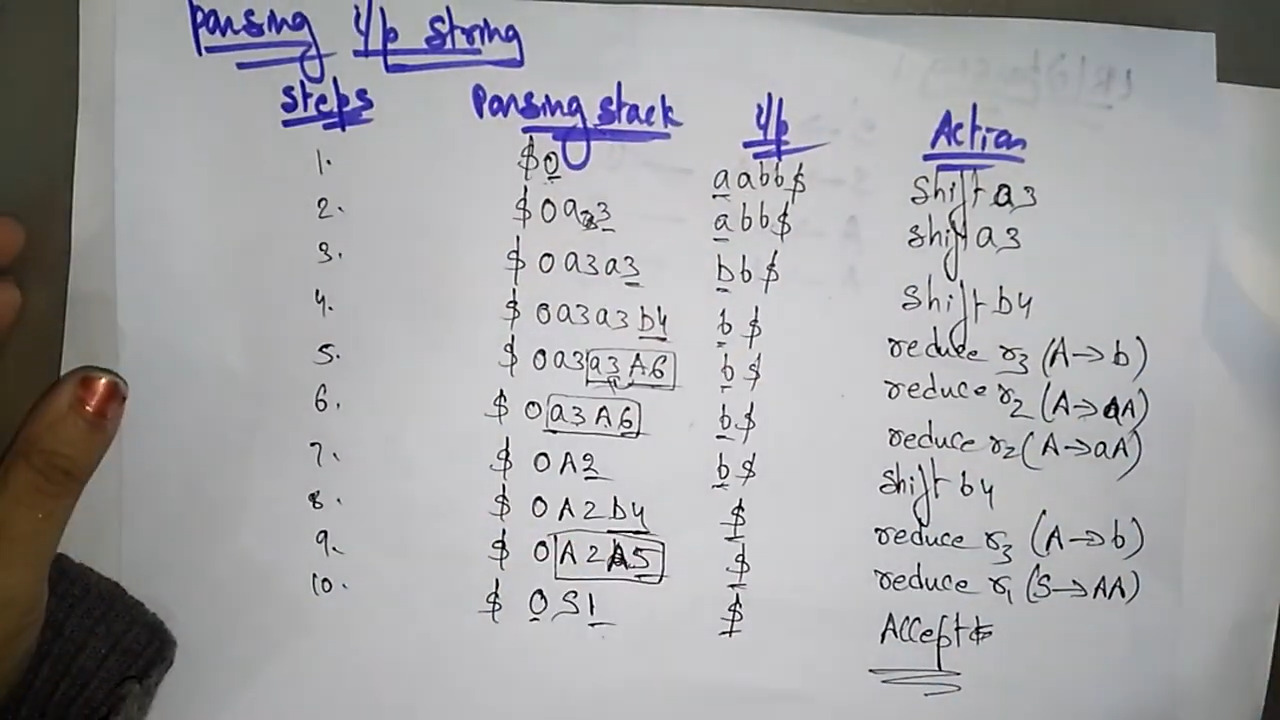 Parsing i/p string
Steps Parsing stack i/p Action
1. $0 aabb$ Shift a3
2. $0a3 abb$ shift a3
3. $0a3a3 bb$ Shift b4
4. $0a3a3b4 b$ reduce r3 (A→b)
5. $0a3a3A6 b$ reduce r2 (A→aA)
6. $0a3A6 b$ reduce r2 (A→aA)
7. $0A2 b$ shift b4
8. $0A2b4 $ reduce r3 (A→b)
9. $0A2A5 $ reduce r1 (S→AA)
10. $0S1 $ Accept